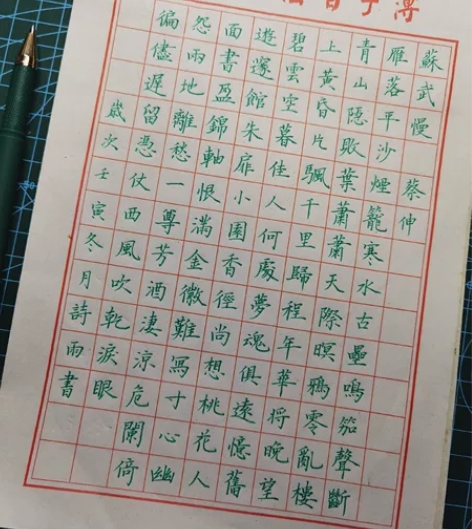 字簿
蘇武慢 蔡伸
雁落平沙煙籠寒水古壘鳴笳聲斷
青山隱敗葉蕭蕭天際暝鴉零亂樓
上黃昏片颿千里歸程年華將晚望
碧雲空暮佳人何處夢魂俱遠憶舊
遊邃館朱扉小園香徑尚想桃花人
面書盈錦軸恨滿金徽難寫寸心幽
怨兩地離愁一尊芳酒淒涼危闌倚
偏儘遲留憑仗西風吹乾淚眼
歲次壬寅冬月詩雨書